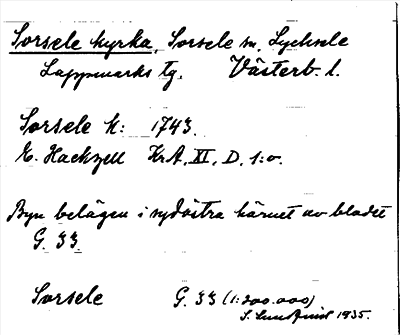 Sorsele kyrka, Sorsele sn. Lycksele
Lappmarks tg. Västerb. l.
Sorsele k: 1743.
E. Hackzell KrA. XI, D. 1:o.
Byn belägen i sydöstra hörnet av bladet
G. 33.
Sorsele G. 33 (1:200.000)
S. Lundqvist 1935.